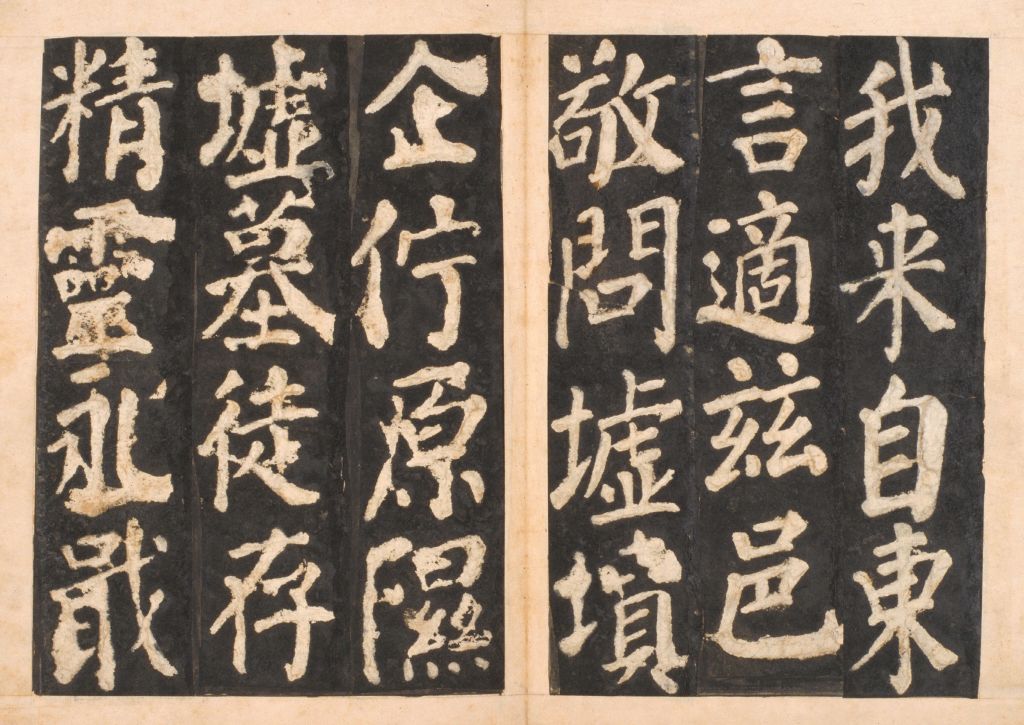 我来自東
言適茲邑
敬問墟墳
企佇原隰
墟墓徒存
精靈永戢